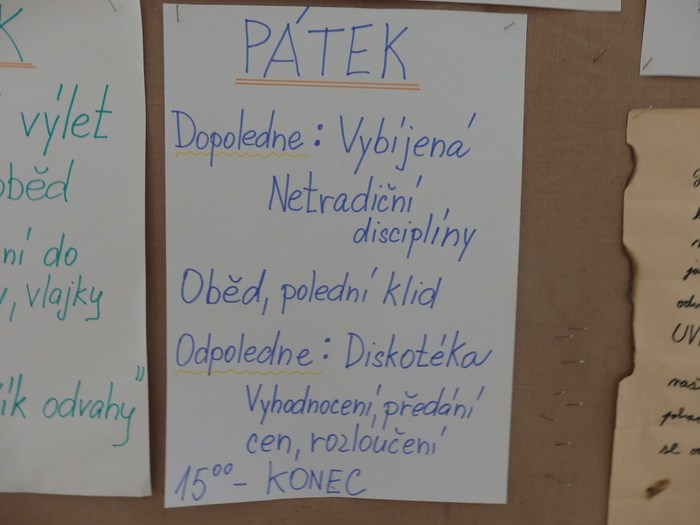 K
výlet
oběd
ní do
, vlajky
ík odvahy"
PÁTEK
Dopoledne: Vybíjená
Netradiční
disciplíny
Oběd, polední klid
Odpoledne: Diskotéka
Vyhodnocení, předání
cen, rozloučení
15⁰⁰ - KONEC
se